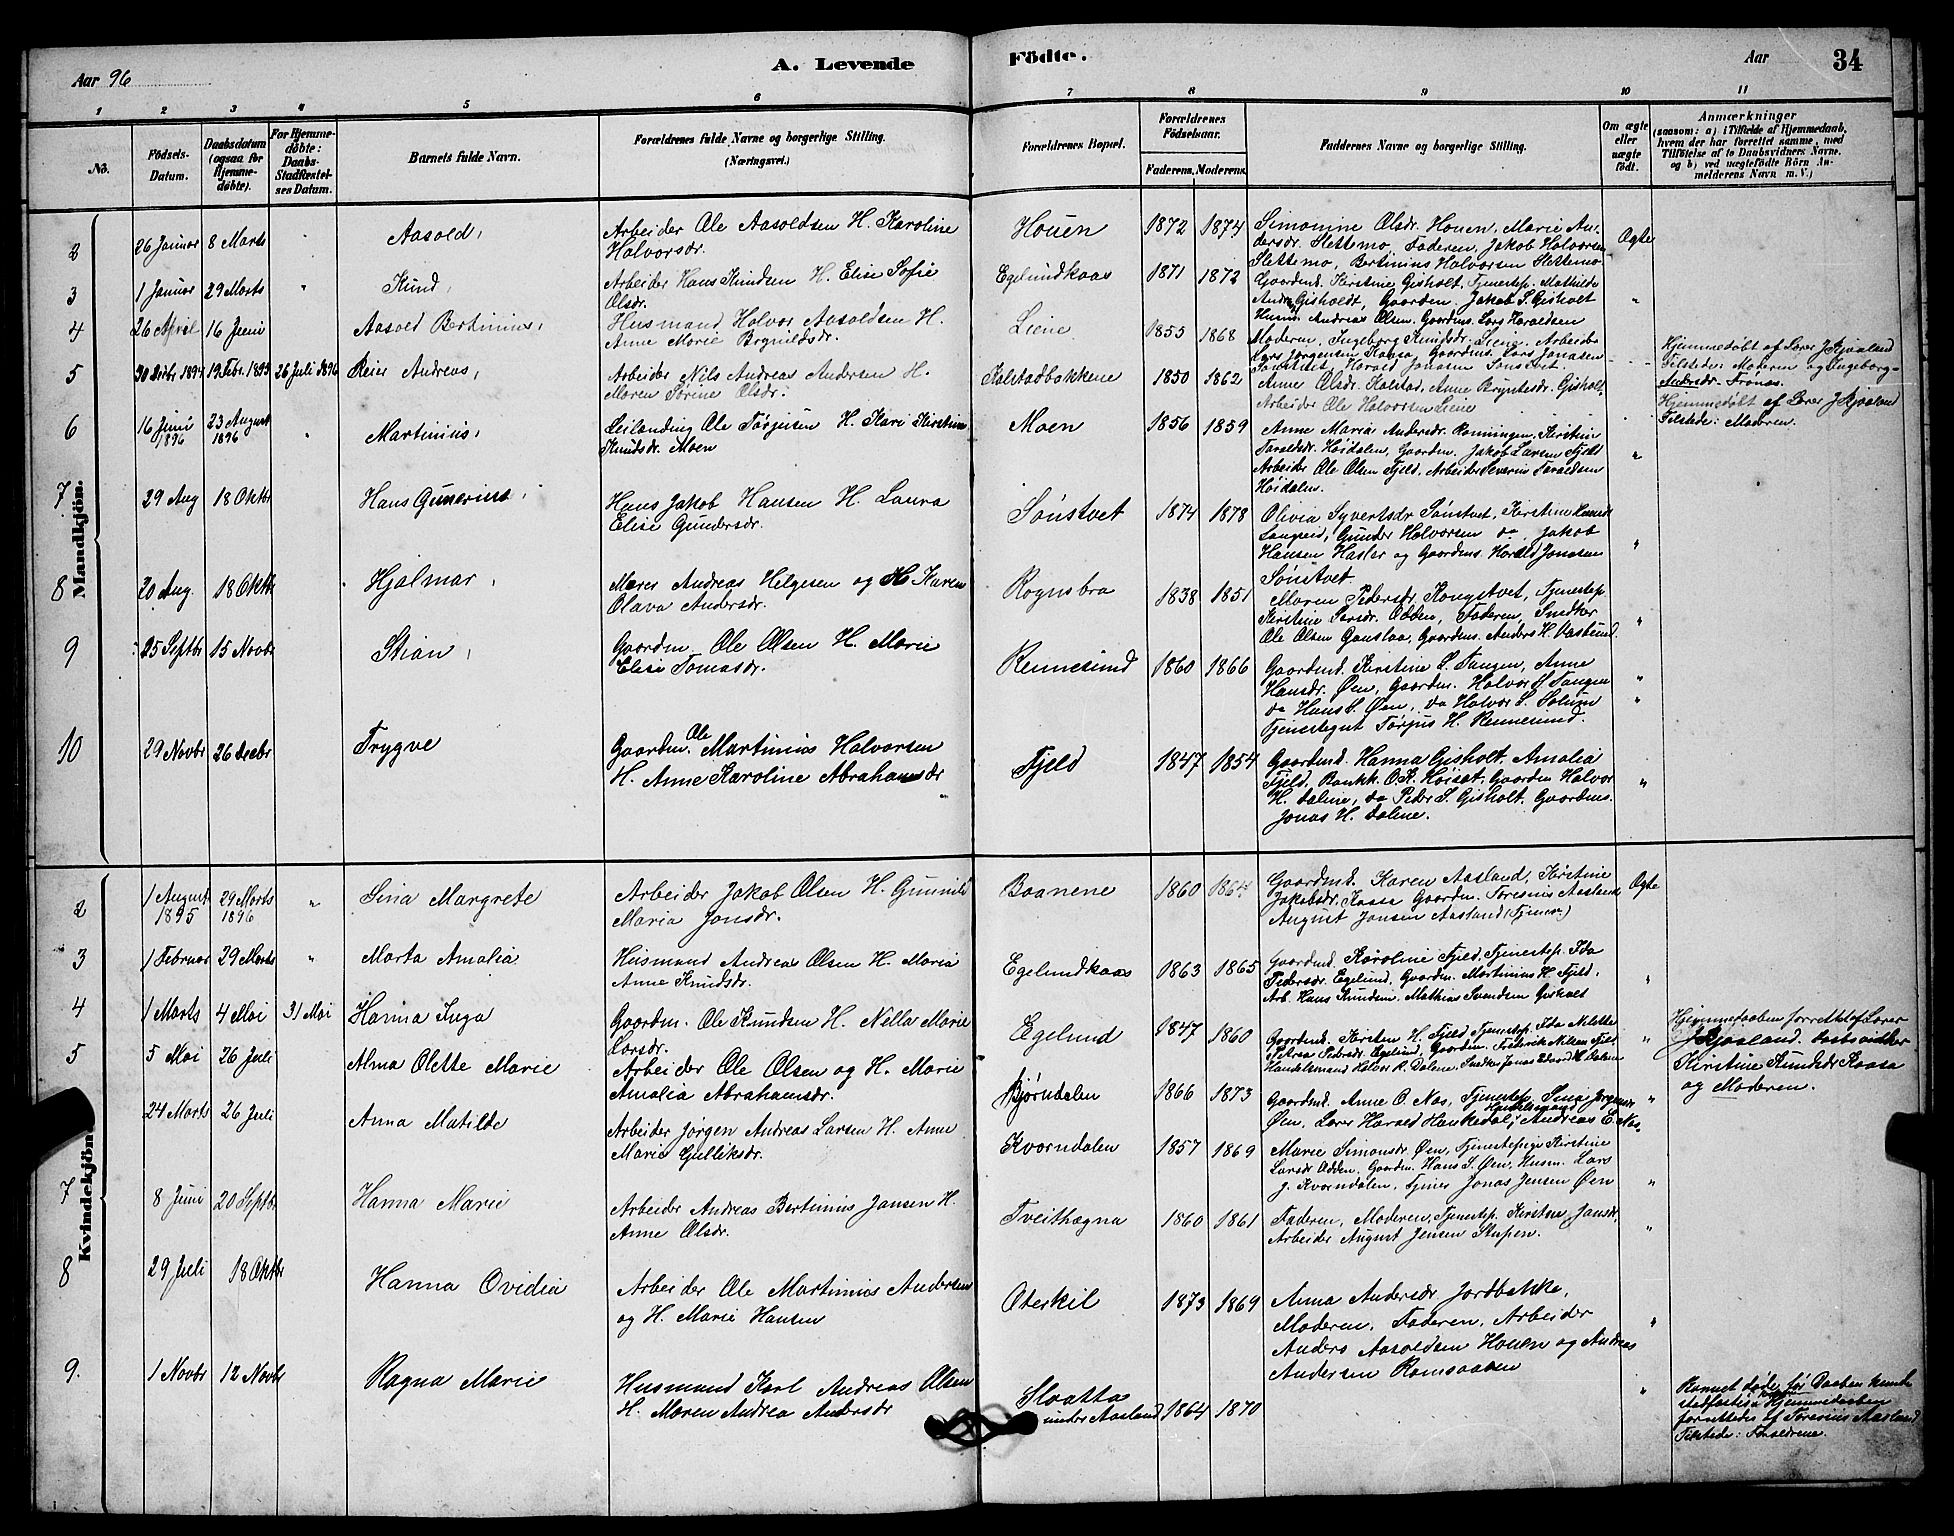 Aar 96
A. Levende
Födte.
Aar
34
1 2 3 4 5 6 7 8 9 10 11
No.
Födsels-Datum.
Daabsdatum (ogsaa for Hjemme-döbte).
For Hjemme-döbte: Daabs-Stadfæstel-ses Datum.
Barnets fulde Navn.
Forældrenes fulde Navne og borgerlige Stilling. (Næringsvei.)
Forældrenes Bopæl.
Forældrenes Födselsaar.
Faderens. Moderens.
Faddernes Navne og borgerlige Stilling.
Om ægte eller uægte födt.
Anmærkninger
(saasom: a) i Tilfælde af Hjemmedaab, hvem der har forrettet samme, med Tilföielse af to Daabsvidners Navne, og b) ved uægtefödte Börn An-melderens Navn m. V.)
Mandkjön.
2 26 Januar 8 Marts " Aasold, Arbeider Ole Aasoldsen H. Karoline
Halvorsdr. Houen 1872 1874 Simonine Olsdr. Houen, Marie An-
dersdr. Slettemo, Faderen, Jakob Halvorsen
Slettemo, Bertinius Halvorsen Slettemo. Ægte
3 1 Januar 29 Marts " Knud, Arbeider Hans Knudsen H. Elise Sofie
Olsdr. Egelundkaas 1871 1872 Gaardmd. Kirstine Gisholt, Tjenestep. Mathilde
Andr. Gisholdt, Gaardm. Jakob S. Gisholt
Husm. Andreas Olsen. Gaardms. Lars Haraldsen "
4 26 April 16 Juni Aasold Bertinius, Husmand Halvor Aasoldsen H.
Anne Marie Brynildsdr. Liene 1855 1868 Moderen, Ingeborg Knudsdr. Liene, Arbeider
Lars Jørgensen Kaasa, Gaardms. Lars Jonasen
Sønstvet, Harald Jonasen Sønstvet.
5 30 Decbr 1894 19 Febr. 1895 26 Juli 1896 Reier Andreas, Arbeider Nils Andreas Andersen H.
Maren Sørine Olsdr. Kalstadbakkene 1850 1862 Anne Olsdr. Kalstad, Anne Bryntesdr. Gisholt,
Arbeider Ole Halvorsen Liene Hjemmedøbt af Lærer J Kjaaland
Tilstede: Moderen og Ingeborg
Andersdr. Fronas.
6 16 Juni 1896 23 August 1896 " Martinius, Leilending Ole Torjusen H. Kari Kirstine
Knudsdr. Moen Moen 1856 1859 Anne Maria Andersdr. Rønningen, Kirstine
Taraldsdr. Høidalen, Gaardm. Jakob Larsen Fjeld
Arbeider Ole Olsen Fjeld, Arbeider Severin Taraldsen
Høidalen. " Hjemmedøbt af Lærer J Kjaaland
Tilstede: Moderen.
7 29 Aug 18 Oktbr Hans Gunerius, Hans Jakob Hansen H. Laura
Elise Gundersdr. Sønstvet 1874 1878 Olivia Syvertsdr Sønstvet, Kirstine
Langeid, Gunder Halvorsen do, Jakob
Hansen Hasler og Gaardms. Harald Jonasen
Sønstvet. "
8 20 Aug. 18 Oktbr Hjalmar, Murer Andreas Helgesen og H Karen
Olava Andersdr. Rognsbra 1838 1851 Maren Pedersdr. Kongstvet, Tjenestep.
Kirstine Larsdr. Odden, Faderen, Snedker
Ole Olsen Ganslaa, Gaardms. Anders H. Vaslund "
9 25 Septbr 15 Novbr Stian, Gaardm. Ole Olsen H. Marie
Elise Tomasdr. Rennesund 1860 1866 Gaardmd. Kirstine S. Tangen, Anne
Hansdr. Øen, Gaardm. Halvor S Tangen
do Hans S. Øen, do Halvor S. Solum
Tjenestegut Torjus H. Rennesund. "
10 29 Novbr 26 Decbr Trygve Gaardm. Ole Martinius Halvorsen
H. Anne Karoline Abrahamsdr Fjeld 1847 1854 Gaardmd. Hanna Gisholt, Amalia
Fjeld, Bankk. O. K. Høisæt, Gaardm Halvor
H. Dalene, do Peder S. Gisholt, Gaardms.
Jonas H. Dalene. "
Kvindekjön.
2 1 August 1895 29 Marts 1896 " Sina Margrete Arbeider Jakob Olsen H. Gunnild
Maria Jonsdr. Baanene 1860 1864. Gaardmd. Karen Aasland, Kirstine
Jakobsdr. Kaasa Gaardm. Toresius Aasland
August Jonsen Aasland (Tjener) Ægte
3 1 Februar 29 Marts " Marta Amalia Husmand Andreas Olsen H. Maria
Anne Knudsdr. Egelundkaas 1863 1865 Gaardmd. Karoline Fjeld, Tjenestep. Ida
Pedersdr. Egelund, Gaardm. Martinius H. Fjeld,
Arb. Hans Knudsen, Mathias Svendsen Gisholt "
4 1 Marts 4 Mai 31 Mai Hanna Inga Gaardm. Ole Knudsen H. Nella Marie
Larsdr. Egelund 1847 1860 Gaardmd. Kirsten H. Fjeld, Tjenestep. Ida Nilette
Petrea Pedersdr Egelund, Gaardm. Frederik Nilsen Fjeld
Handelsmand Halvor R. Dalene, Snedker Jonas Edvard H Dalen " Hjemmedaaben forrettet af Lærer
J Kjaaland. Daabsvidner
Kirstine Knudsdr Kaasa
og Moderen.
5 5 Mai 26 Juli Alma Olette Marie Arbeider Ole Olsen og H. Marie
Amalia Abrahamsdr. Bjørndalen 1866 1873 Gaardmd. Anne O. Nas, Tjenestep. Sina Jørgensdr
Øen, Lærer Harald Hankedal, Andreas E. Nas. "
24 Marts 26 Juli Anna Matilde Arbeider Jørgen Andreas Larsen H. Anne
Maria Gulliksdr. Kvorndalen 1857 1869 Marie Simonsdr Øen, Tjenestepige Kirstine
Larsdr Odden, Gaardm. Hans S. Øen, Husm. Lars
J. Kvorndalen, Tjener Jonas Jensen Øen "
7 8 Juni 20 Septbr Hanna Marie Arbeider Andreas Bertinius Jansen H.
Anne Olsdr. Tveithægna 1860 1861 Faderen, Moderen, Tjenestep. Kirstine Jansdr,
Arbeider August Jensen Stupen. "
8 29 Juli 18 Oktbr Hanna Ovidia Arbeider Ole Martinius Andersen
og H. Marie Hansen Oterkil 1873 1869 Anna Andersdr Jordbakke,
Moderen, Faderen, Arbeider
Anders Aasoldsen Houen og Andreas
Andersen Ramsaasen "
9. 1 Novbr 12 Novbr Ragna Marie Husmand Karl Andreas Olsen
H. Maren Andrea Andersdr Slaatta
under Aasland 1864 1870 " Barnet døde før Daaben kunde
stadfæstes. Hjemmedaaben
forrettedes af Toresius Aasland
Tilstede: Forældrene.